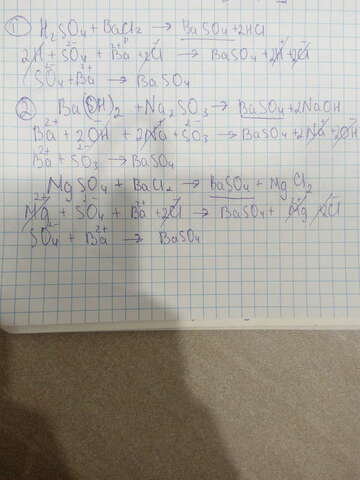 ① H₂SO₄ + BaCl₂ → BaSO₄ + 2HCl
2H⁺ + SO₄²⁻ + Ba²⁺ + 2Cl⁻ → BaSO₄ + 2H⁺ + 2Cl⁻
SO₄²⁻ + Ba²⁺ → BaSO₄
② Ba(OH)₂ + Na₂SO₃ → BaSO₄ + 2NaOH
Ba²⁺ + 2OH⁻ + 2Na⁺ + SO₃²⁻ → BaSO₄ + 2Na⁺ + 2OH⁻
Ba²⁺ + SO₃²⁻ → BaSO₄
MgSO₄ + BaCl₂ → BaSO₄ + MgCl₂
Mg²⁺ + SO₄²⁻ + Ba²⁺ + 2Cl⁻ → BaSO₄ + Mg²⁺ 2Cl⁻
SO₄²⁻ + Ba²⁺ → BaSO₄